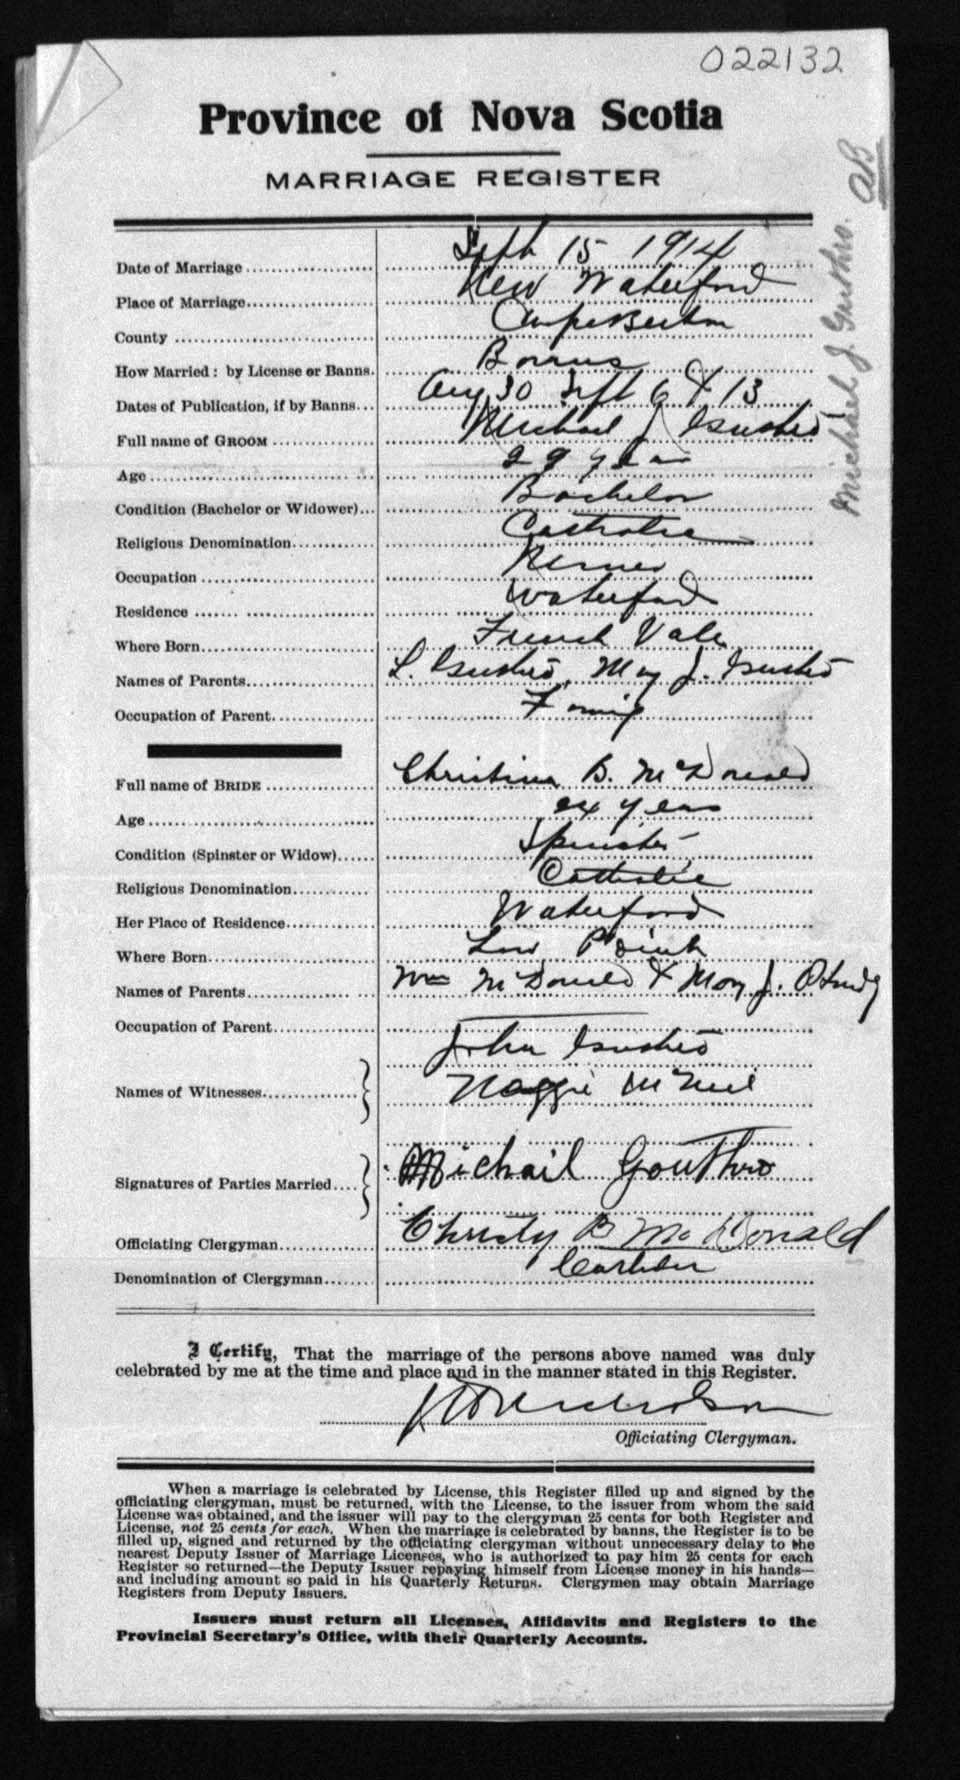 022132
Province of Nova Scotia
MARRIAGE REGISTER
Michael J. Guthro. AB
Date of Marriage Sept 15 1914
Place of Marriage New Waterford
County Cape Breton
How Married: by License or Banns. Banns
Dates of Publication, if by Banns Aug 30 Sept 6 & 13
Full name of GROOM Michael J Guthro
Age 29 years
Condition (Bachelor or Widower) Bachelor
Religious Denomination Catholic
Occupation Miner
Residence Waterford
Where Born French Vale
Names of Parents L. Guthro, Mary J. Guthro
Occupation of Parent Farming
Full name of BRIDE Christina B. McDonald
Age 24 years
Condition (Spinster or Widow) Spinster
Religious Denomination Catholic
Her Place of Residence Waterford
Where Born Low Point
Names of Parents Wm McDonald & Mary J.
Occupation of Parent
Names of Witnesses John Guthro
Maggie McNeil
Signatures of Parties Married Michail Gouthro
Christy B McDonald
Officiating Clergyman
Denomination of Clergyman
I Certify, That the marriage of the persons above named was duly
celebrated by me at the time and place and in the manner stated in this Register.
Nicholson
Officiating Clergyman.
When a marriage is celebrated by License, this Register filled up and signed by the
officiating clergyman, must be returned, with the License, to the issuer from whom the said
License was obtained, and the issuer will pay to the clergyman 25 cents for both Register and
License, not 25 cents for each. When the marriage is celebrated by banns, the Register is to be
filled up, signed and returned by the officiating clergyman without unnecessary delay to the
nearest Deputy Issuer of Marriage Licenses, who is authorized to pay him 25 cents for each
Register so returned—the Deputy Issuer repaying himself from License money in his hands—
and including amount so paid in his Quarterly Returns. Clergymen may obtain Marriage
Registers from Deputy Issuers.
Issuers must return all Licenses, Affidavits and Registers to the
Provincial Secretary's Office, with their Quarterly Accounts.